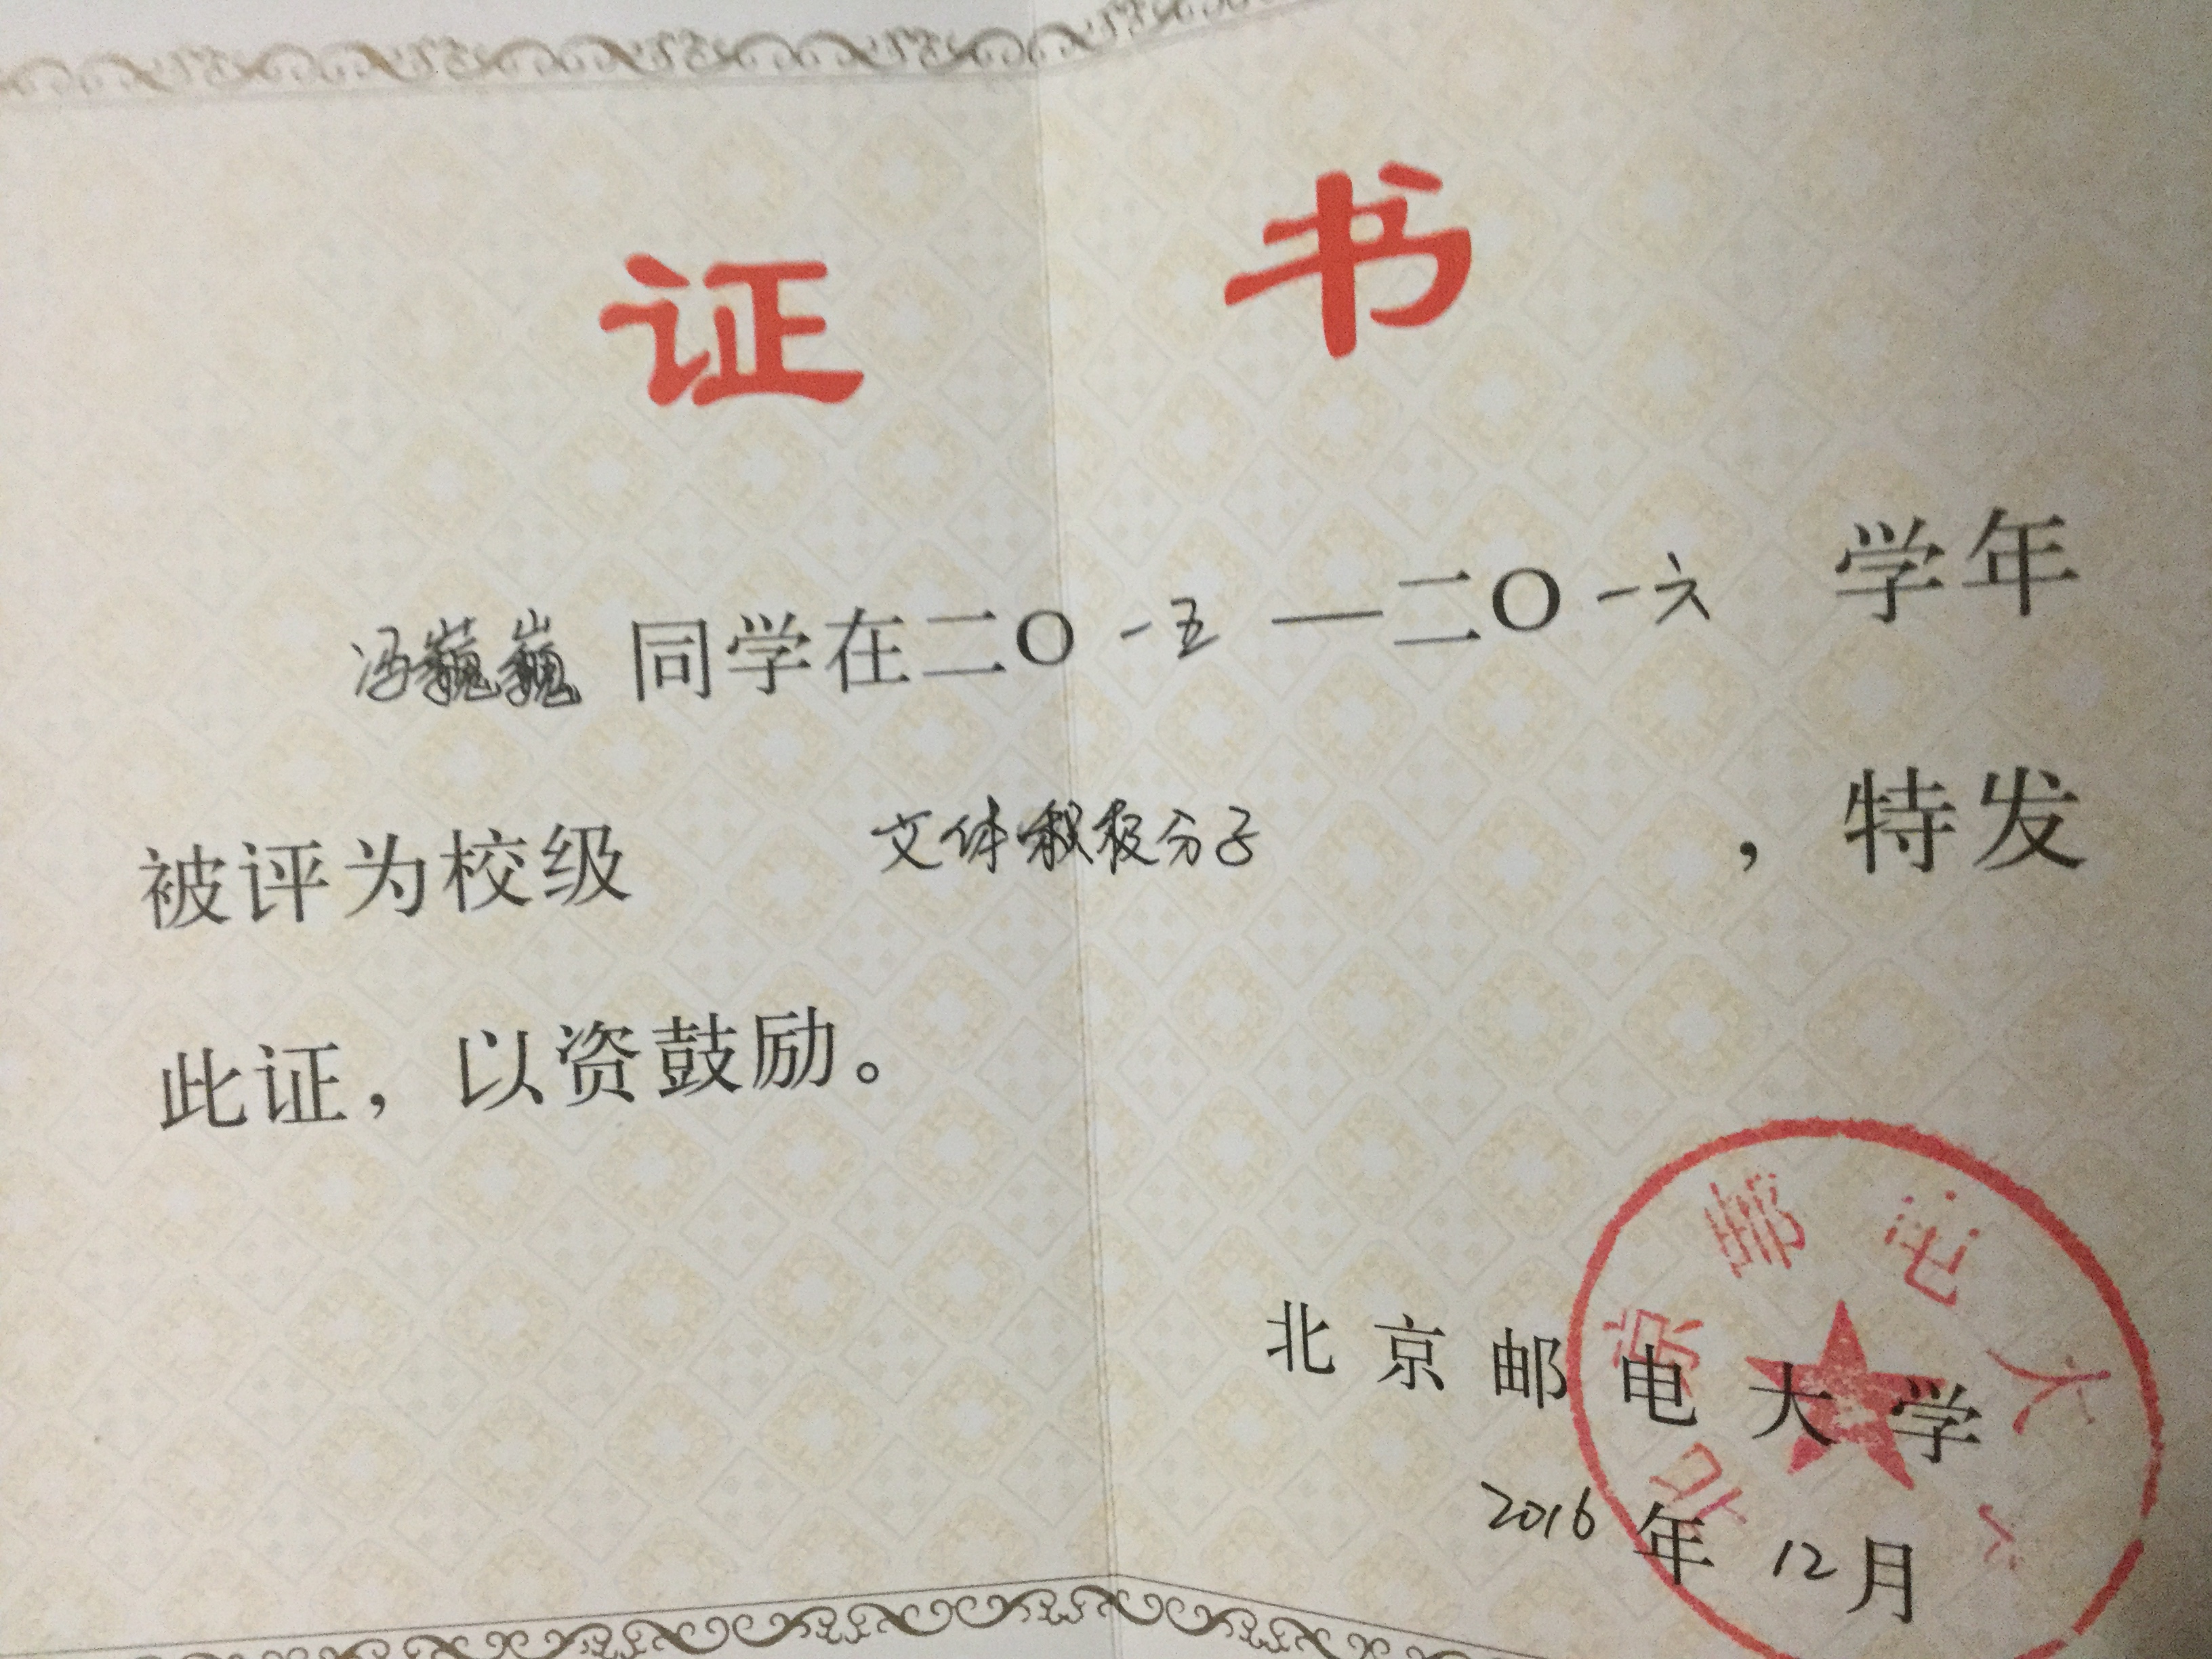 证书
冯巍巍同学在二〇一五—二〇一六学年
被评为校级 文体积极分子，特发
此证，以资鼓励。
北京邮电大学
北京邮电大
2016年12月